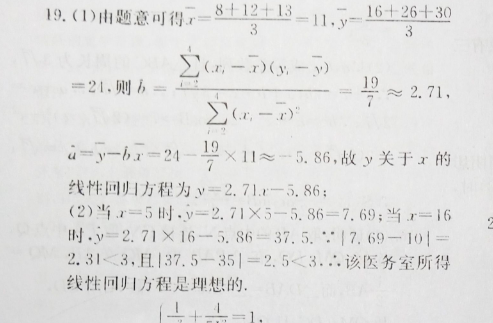 19. (1)由题意可得x̄=(8+12+13)/3=11,ȳ=(16+26+30)/3
=24,则b̂=∑(i=2→4)(xᵢ-x̄)(yᵢ-ȳ)/∑(i=2→4)(xᵢ-x̄)²=19/7≈2.71,
â=ȳ-b̂x̄=24-19/7×11≈-5.86,故y关于x的
线性回归方程为y=2.71x-5.86;
(2)当x=5时,y=2.71×5-5.86=7.69;当x=16
时,y=2.71×16-5.86=37.5.∵|7.69-10|=
2.31<3,且|37.5-35|=2.5<3.∴该医务室所得
线性回归方程是理想的.